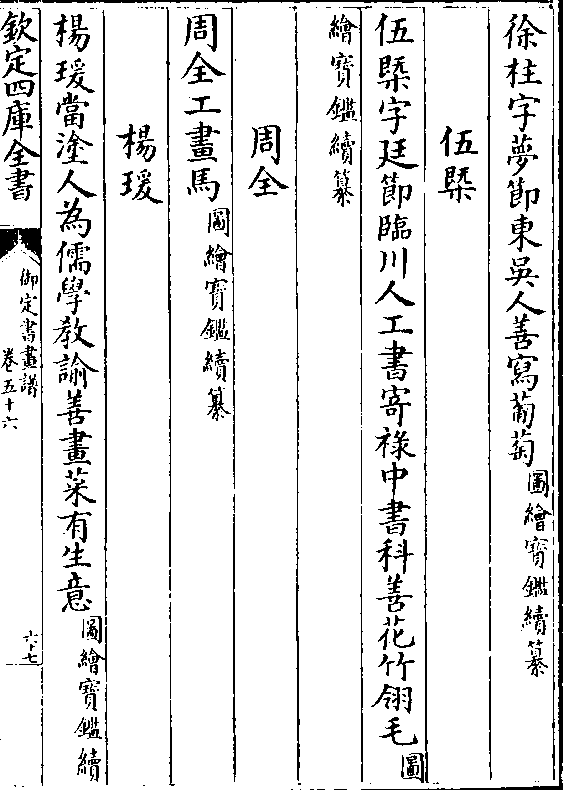 徐柱字夢節東吳人善寫葡萄圖繪寳鑑續纂
伍槩
伍槩字廷節臨川人工書寄祿中書科善花竹翎毛圖
繪寳鑑續纂
周全
周全工畫馬圖繪寳鑑續纂
楊瑗
楊瑗當塗人為儒學教諭善畫菜有生意圖繪寳鑑續
欽定四庫全書
御定書畫譜
卷五十六
六十七